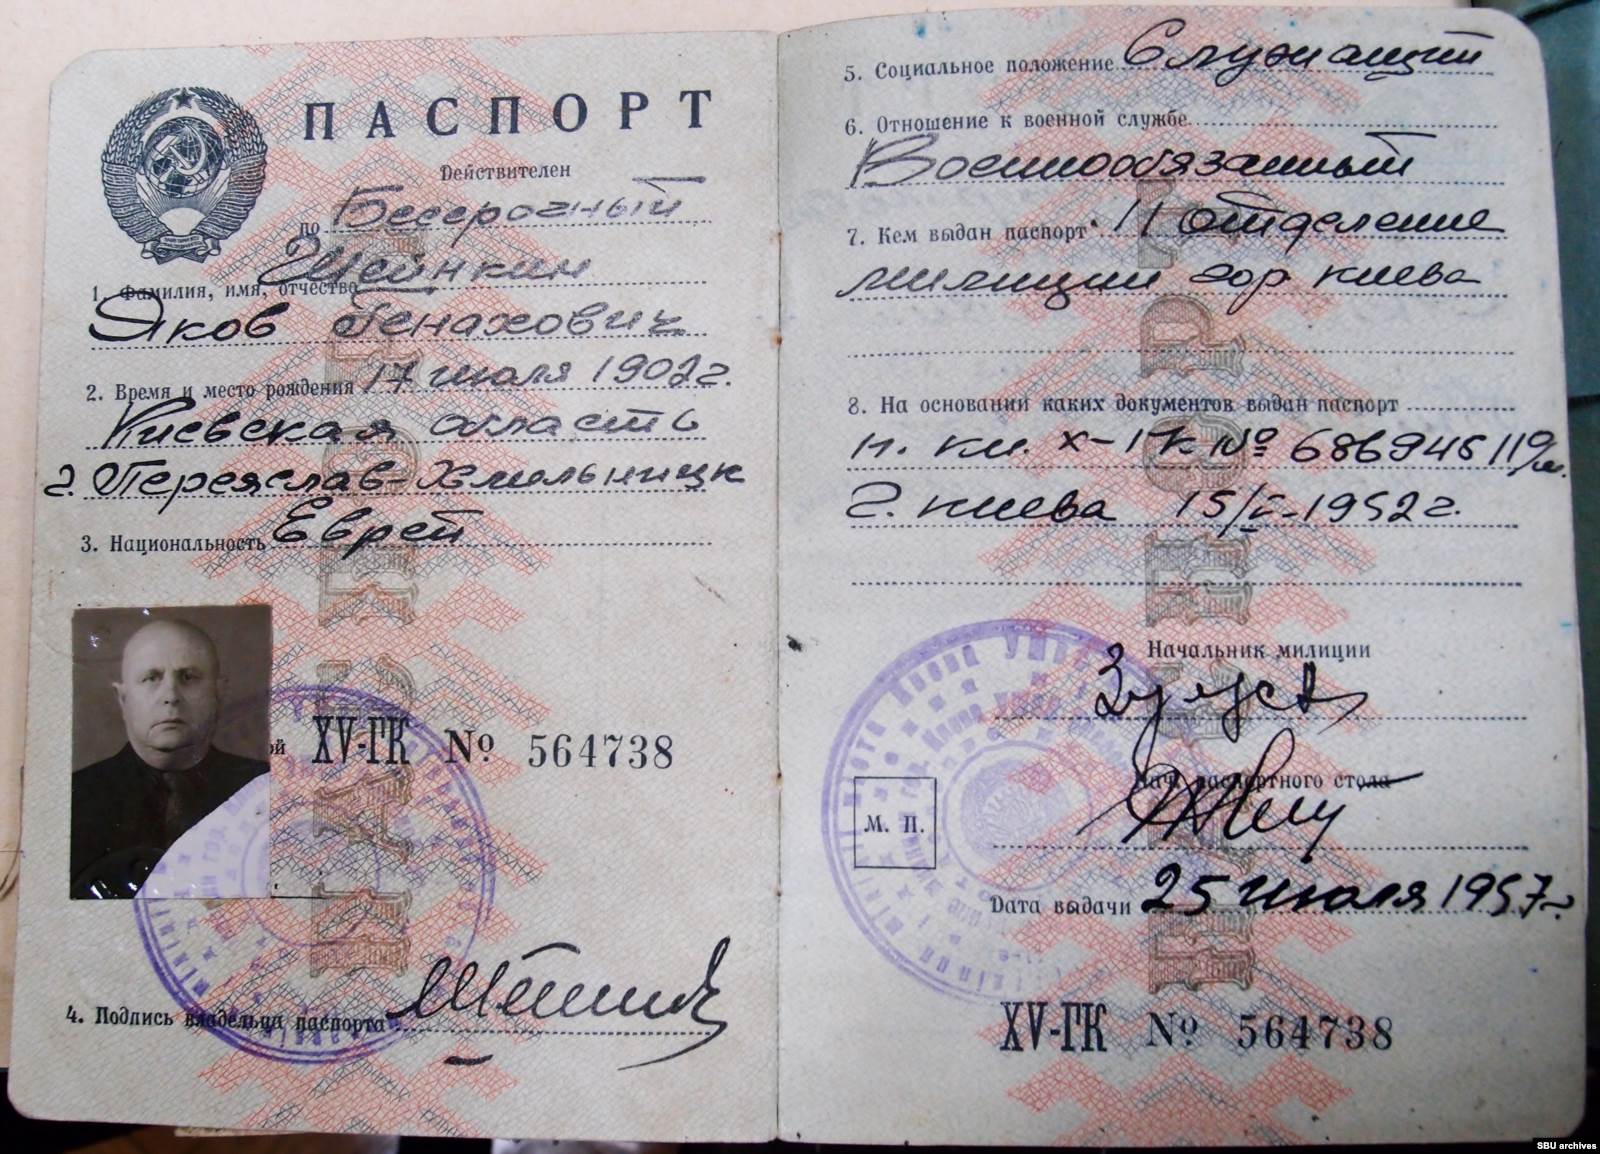 ПАСПОРТ
Действителен
по Бессрочный
Шейнкин
1. Фамилия, имя, отчество
Яков Генахович
2. Время и место рождения 17 июля 1902 г.
Киевская область
г. Переяслав-Хмельницк
3. Национальность Еврей
ой XV-ГК № 564738
4. Подпись владельца паспорта
5. Социальное положение Служащий
6. Отношение к военной службе
Военнообязанный
7. Кем выдан паспорт 11 отделение
милиции гор Киева
8. На основании каких документов выдан паспорт
№ 686945 11 о/м.
г. Киева 15/V-1952 г.
Начальник милиции
Нач. паспортного стола
М. П.
Дата выдачи 25 июля 1957 г.
XV-ГК № 564738
SBU archives